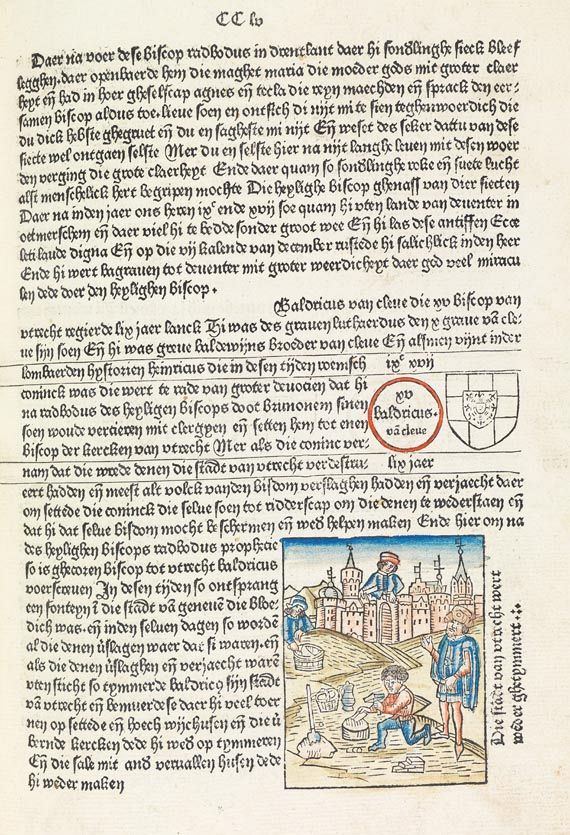 CC lv
Daer na voer dese biscop radbodus in drentlant daer hi sondlinghe sieck bleef
legghen. daer openbaerde hem die maghet maria die moeder gods mit groter claer
heyt eñ had in hoer gheselscap agnes eñ tecla die reyn maechden eñ sprack den eer-
samen biscop aldus toe. lieve soen en ontsich di nijt mi te sien teghenwoerdich die
du dick hebste ghegruet eñ du en sagheste mi nijt Eñ weset des seker dattu van dese
siecte wel ontgaen selste Mer du en selste hier na nijt langhe leuen mit desen woer
den verging die grote claerheyt Ende daer quam so sondlinghe roke eñ suete lucht
alst menschelick hert begripen mochte Die heylighe biscop ghenass van dier siecten
Daer na inden jaer ons heren ixᶜ ende xvij soe quam hi vten lande van deventer in
oetmerschem eñ daer viel hi te bedde sonder groot wee Eñ hi las dese antiffen Ecce
leti laude digna Eñ op die vij kalende van december rustede hi salichlick inden heer
Ende hi wert bagrauen tot deuenter mit groter weerdicheyt daer god veel miracu
len dede doer den heylighen biscop.
Baldricus van cleve die xv biscop van
vtrecht regierde lix jaer lanck Hi was des grauen luthaerdus den x graue vã cle-
ue sijn soen Eñ hi was greue baldewijns broeder van cleue Eñ alsmen vijnt inder
lombaerden hystorien heinricus die in desen tijden roemsch
ixᶜ xvij
coninck was die wert te rade van groter deuocien dat hi
na radbodus des heyligen biscops doot brunonem sinen
soen woude versieren mit clergyen eñ setten hem tot enen
biscop der kercken van vtrecht Mer als die coninc ver-
nam dat die wrede denen die stadt van vtrecht verdestru-
xv
baldricus.
vã cleue
lix jaer
eert hadden eñ meest alt volck vanden bisdom verslaghen hadden eñ verjaecht daer
om settede die coninck die selue soen tot ridderscap om die denen te wederstaen eñ
dat hi dat selue bisdom mocht beschermen eñ weď helpen maken Ende hier om na
des heylighen biscops radbodus prophecie
so is ghecoren biscop tot vtrecht baldricus
voerscreuen Jn desen tijden so ontsprang
een fonteyn ĩ die stadt vã geneuen die bloe-
dich was. eñ inden seluen dagen so wordẽ
al die denen v̉slagen waer dat si waren. eñ
als die denen v̉slaghen eñ verjaecht warẽ
vten sticht so tymmerde baldricꝰ sijn stadt
vã vtrecht eñ bemuerdese daer hi veel toer
nen op settede eñ hoech wijchusen eñ die v̉
bernde kercken dede hi weď op tymmeren
Eñ die sale mit and̉ veruallen husen dede
hi weder maken
Die stadt van vtrecht wert
weder ghetymmert.